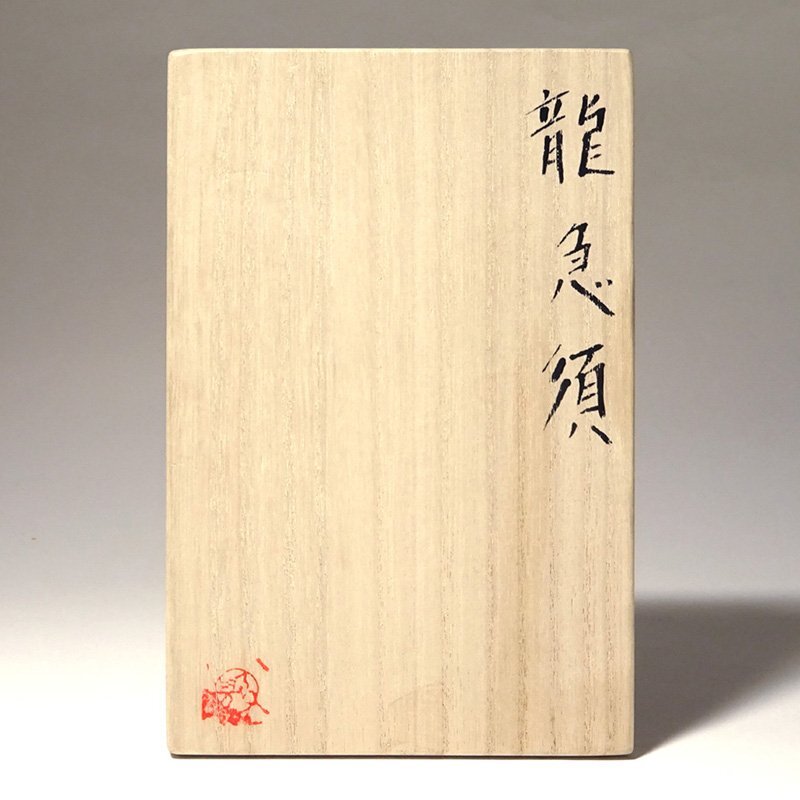 龍急須